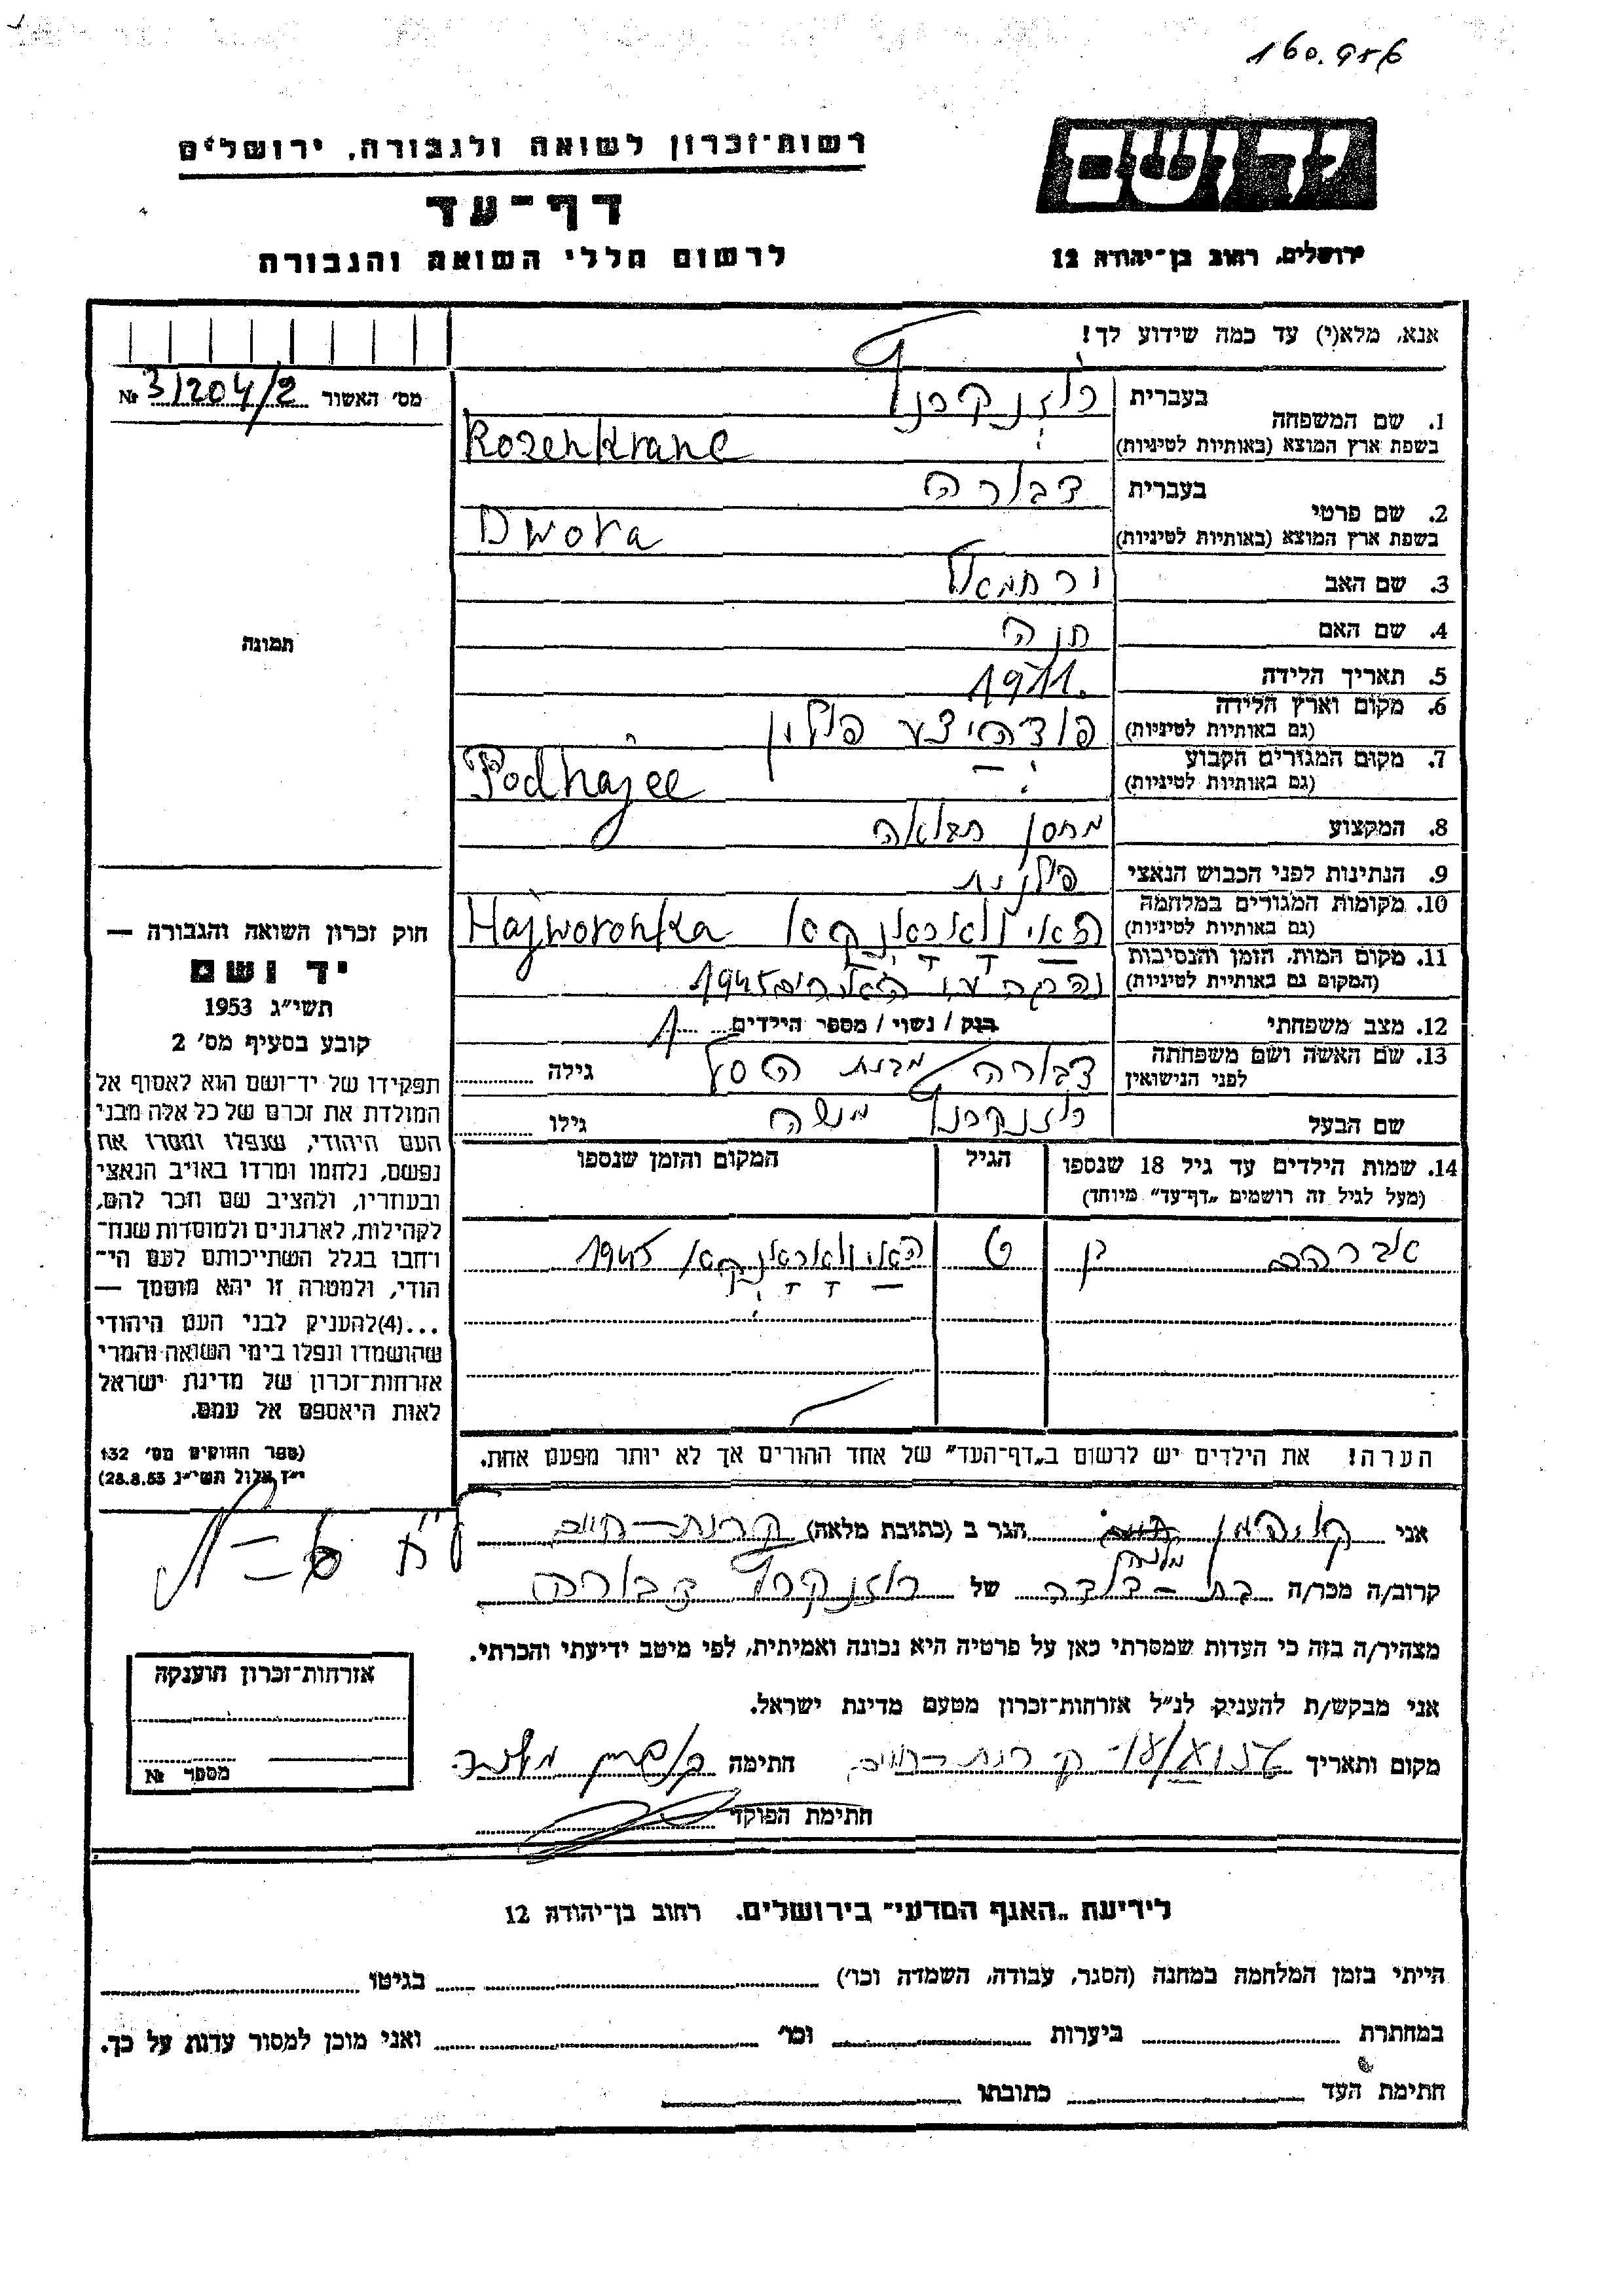 160.956
יד ושם
רשות־זכרון לשואה ולגבורה, ירושלים
דף־עד
לרשום חללי השואה והגבורה
ירושלים, רחוב בן־יהודה 12
אנא, מלא(י) עד כמה שידוע לך!
מס׳ האשור 31204/2 №
1. שם המשפחה
בעברית רוזנקרנץ
בשפת ארץ המוצא (באותיות לטיניות) Rozenkranc
2. שם פרטי
בעברית דבורה
בשפת ארץ המוצא (באותיות לטיניות) Dwora
3. שם האב ירחמאל
4. שם האם חנה
5. תאריך הלידה 1911.
6. מקום וארץ הלידה פודהייצע פולין
(גם באותיות לטיניות)
7. מקום המגורים הקבוע Podhajce
(גם באותיות לטיניות)
8. המקצוע מחסן תבואה
9. הנתינות לפני הכבוש הנאצי פולנית
10. מקומות המגורים במלחמה Hajworonka
(גם באותיות לטיניות)
11. מקום המות, הזמן והנסיבות 1945
(המקום גם באותיות לטיניות)
12. מצב משפחתי רווק / נשוי / מספר הילדים 1
13. שם האשה ושם משפחתה דבורה מבית גילה
לפני הנישואין
שם הבעל רוזנקרנץ משה גילו
14. שמות הילדים עד גיל 18 שנספו הגיל המקום והזמן שנספו
(מעל לגיל זה רושמים „דף־עד״ מיוחד)
אברהם בן 6 1945
הערה! את הילדים יש לרשום ב„דף־העד״ של אחד ההורים אך לא יותר מפעם אחת.
תמונה
חוק זכרון השואה והגבורה —
יד ושם
תשי״ג 1953
קובע בסעיף מס׳ 2
תפקידו של יד־ושם הוא לאסוף אל
המולדת את זכרם של כל אלה מבני
העם היהודי, שנפלו ומסרו את
נפשם, נלחמו ומרדו באויב הנאצי
ובעוזריו, ולהציב שם וזכר להם,
לקהילות, לארגונים ולמוסדות שנח־
רחבו בגלל השתייכותם לעם הי־
הודי, ולמטרה זו יהא מוסמך —
...(4)להעניק לבני העם היהודי
שהושמדו ונפלו בימי השואה והמרי
אזרחות־זכרון של מדינת ישראל
לאות היאספם אל עמם.
(ספר החוקים מס׳ 132
י״ז אלול תשי״ג 28.8.53)
אני הגר ב (כתובת מלאה) קרית־חיים
קרוב/ה מכר/ה בת־דודה של רוזנקרנץ דבורה
מצהיר/ה בזה כי העדות שמסרתי כאן על פרטיה היא נכונה ואמיתית, לפי מיטב ידיעתי והכרתי.
אני מבקש/ת להעניק לנ״ל אזרחות־זכרון מטעם מדינת ישראל.
מקום ותאריך קרית־חיים חתימה
חתימת הפוקד
אזרחות־זכרון הוענקה
מספר №
לידיעת „האגף המדעי״ בירושלים, רחוב בן־יהודה 12
הייתי בזמן המלחמה במחנה (הסגר, עבודה, השמדה וכו׳) בגיטו
במחתרת ביערות וכו׳ ואני מוכן למסור עדות על כך.
חתימת העד כתובתו